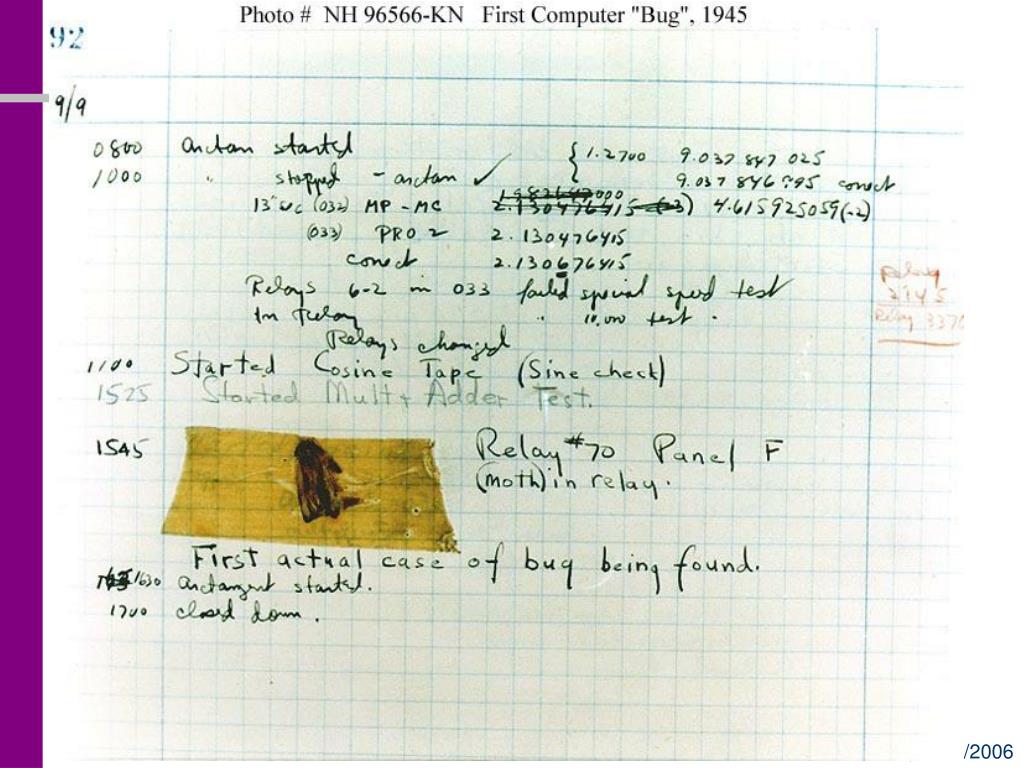 Photo # NH 96566-KN First Computer "Bug", 1945
92
9/9
0800 Antan started
1000 " stopped - antan ✓ { 1.2700 9.037 847 025
9.037 846 995 conect
13" uc (032) MP - MC 2.130476415 (-3) 4.615925059(-2)
(033) PRO 2 2.130476415
conect 2.130676415
Relays 6-2 in 033 failed special speed test
In Relay " 10,000 test .
Relays changed
Relay
2145
Relay 3370
1100 Started Cosine Tape (Sine check)
1525 Started Mult + Adder Test.
1545 Relay #70 Panel F
(moth) in relay.
First actual case of bug being found.
1630 Antangent started.
1700 closed down .
/2006